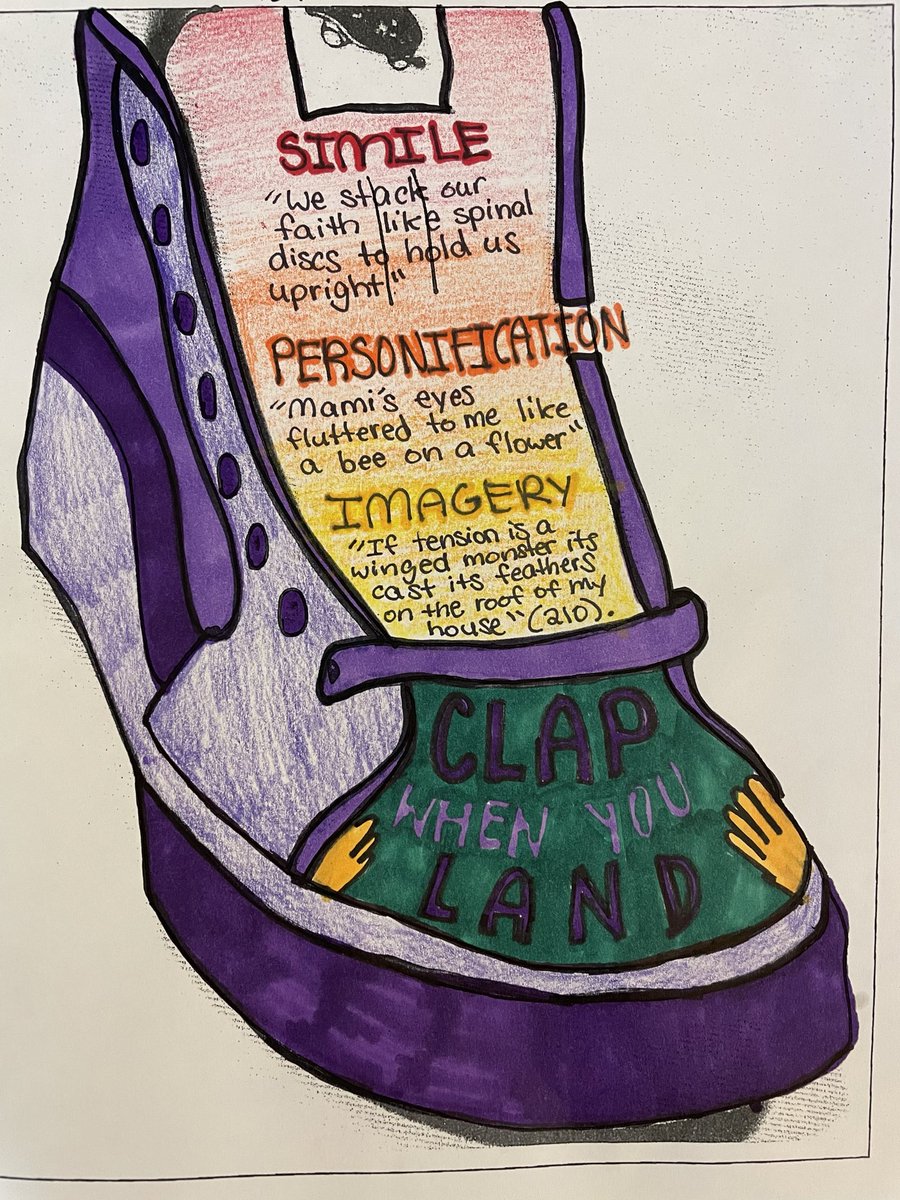 SIMILE
"We stack our
faith like spinal
discs to hold us
upright."
PERSONIFICATION
"Mami's eyes
fluttered to me like
a bee on a flower"
IMAGERY
"If tension is a
winged monster its
cast its feathers
on the roof of my
house" (210).
CLAP
WHEN YOU
LAND